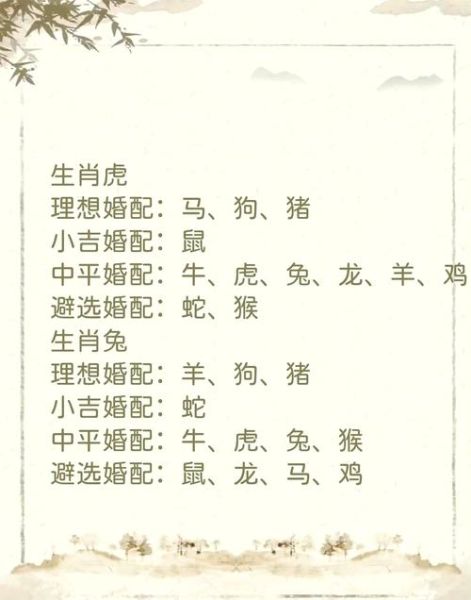 生肖虎
理想婚配：马、狗、猪
小吉婚配：鼠
中平婚配：牛、虎、兔、龙、羊、鸡
避选婚配：蛇、猴
生肖兔
理想婚配：羊、狗、猪
小吉婚配：蛇
中平婚配：牛、虎、兔、猴
避选婚配：鼠、龙、马、鸡